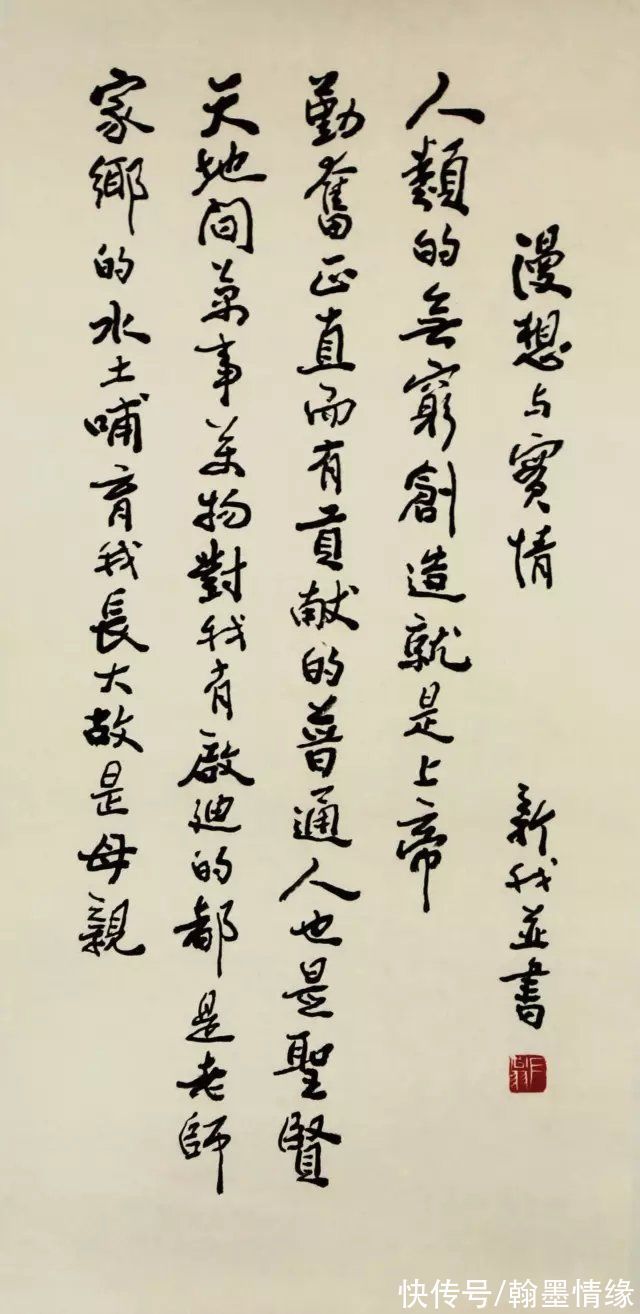 漫想与實情
新我並書
人類的無窮創造就是上帝
勤奮正直而有貢献的普通人也是聖賢
天地間萬事萬物對我有啟廸的都是老師
家鄉的水土哺育我長大故是母親
快传号/翰墨情缘